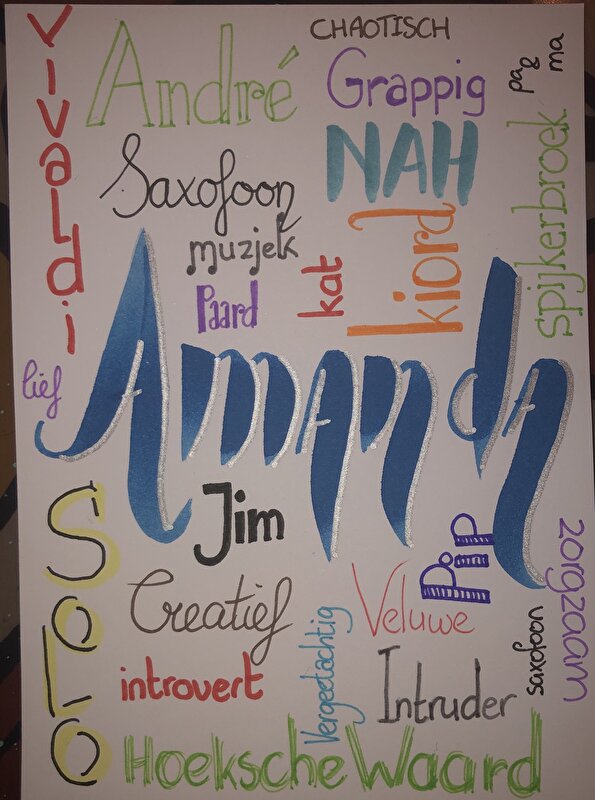 Vivaldi
André
CHAOTISCH
Grappig
pa & ma
NAH
Saxofoon
muziek
kat
kjord
spijkerbroek
Paard
lief
Amanda
Soto
Jim
Pip
zorgzaam
Creatief
Veluwe
Vergeetachtig
saxofoon
introvert
Intruder
Hoeksche Waard